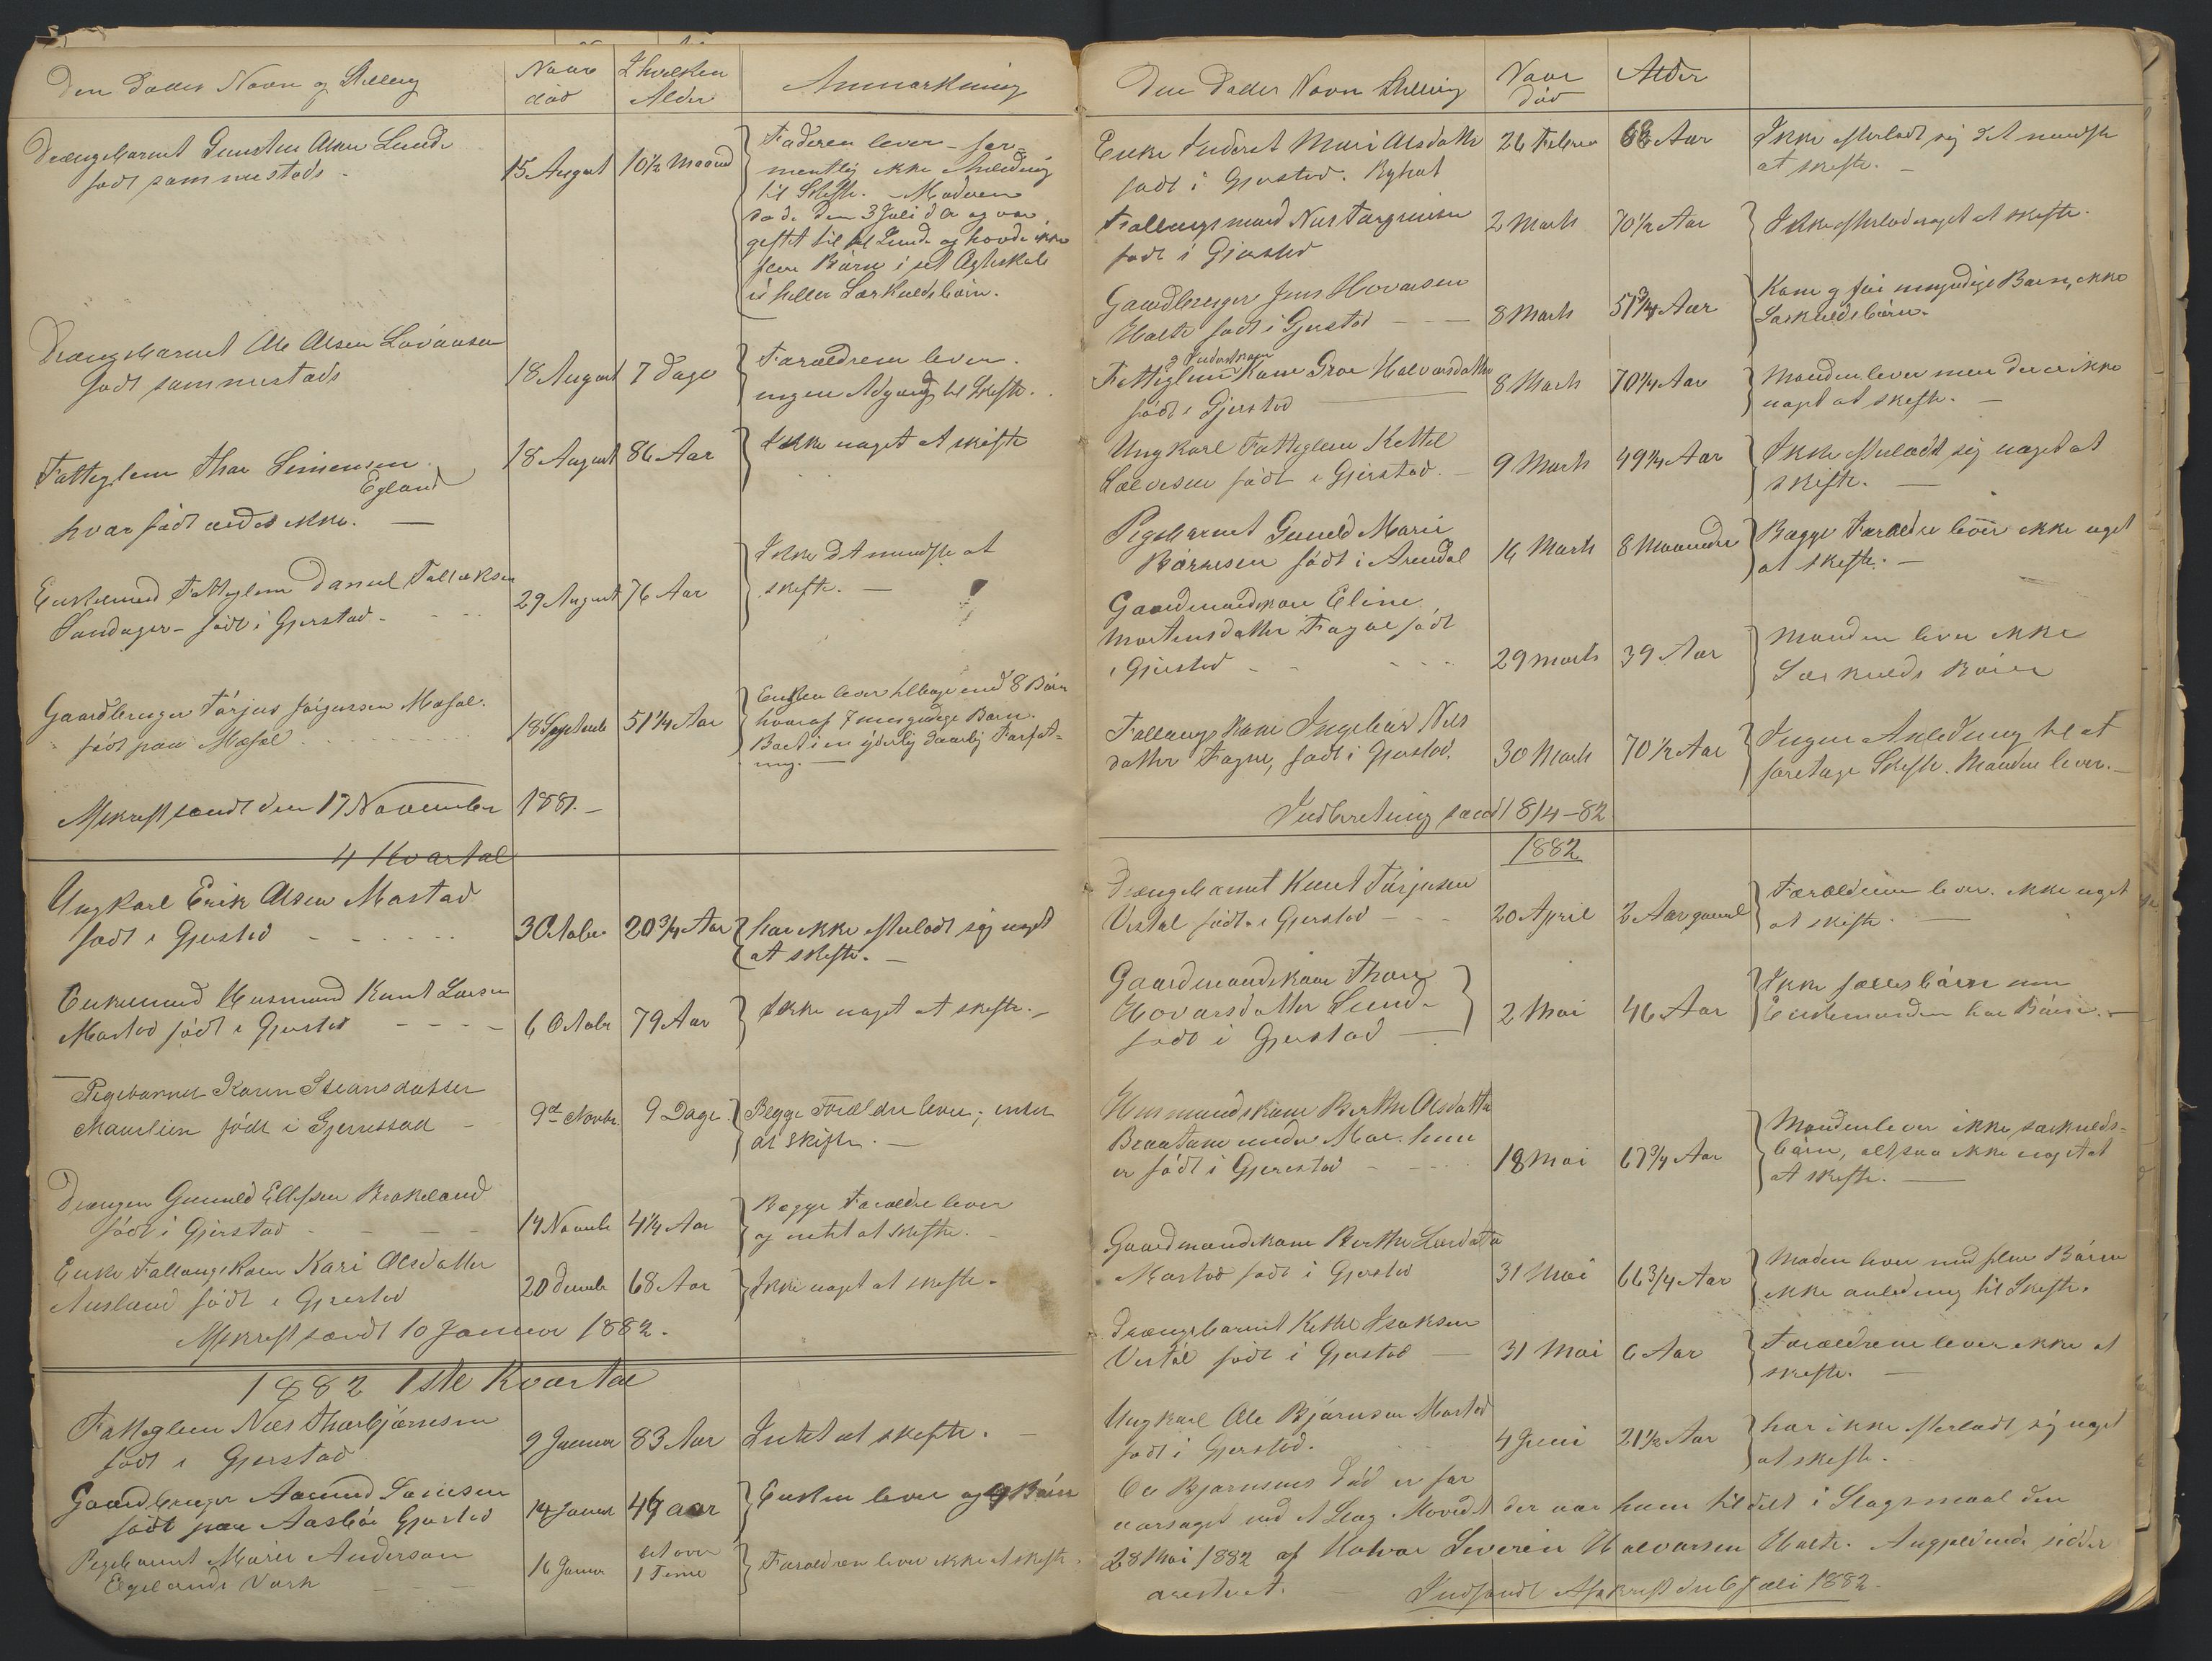 Den Dødes Navn og Stilling
Naar død
I hvilken Alder
Anmærkning
Drængebarnet Gunsten Olsen Lunde
født sammesteds
15 August
10½ Maaned
Faderen lever – for-
mentlig ikke Anledning
til Skifte. – Moderen
døde den 3 Juli d A og var
giftet til Lunde og havde ikke
flere Børn i sit Ægteskab
ei heller Særkuldsbørn.
Drængebarnet Ole Olsen
født sammesteds
18 August
7 Dage
Forældrene lever.
ingen Adgang til Skifte.
Fatteglem Thor Simensen
Egland
hvor født vides ikke. —
18 August
86 Aar
Ikke noget at skifte
Enkemand Fatteglem Daniel Tallaksen
Sandager – født i Gjerstad –
29 August
76 Aar
Ikke det mindste at
skifte. —
Gaardbruger Tarjus Jørgensen Mosfal.
født paa Mæsel
18 Septemb
51¼ Aar
Enken lever tilbage med 8 Børn
hvoraf 7 umyndige Børn.
Boet i en yderlig daarlig Forfat-
ning. —
Afskrift sendt den 17 November 1881. –
4 Kvartal
Ungkarl Erik Olsen Mostad
født i Gjerstad
3 Octobe
20¾ Aar
har ikke efterladt sig noget
at skifte. —
Enkemand Husmand Knut Larsen
Mostad født i Gjerstad
6 Octobr
79 Aar
Ikke noget at skifte. –
Pigebarnet Karen Steansdatter
født i Gjerrestad –
9de Novbr.
9 Dage
Begge Forældre lever; intet
at skifte. —
Drengen Gunuld Ellefsen Brokeland
født i Gjerstad
14 Novemb
4¼ Aar
Begge Forældre lever
og intet at skifte. –
Enke Follaugskone Kari Olsdatter
Ausland født i Gjerstad
20 Decemb
68 Aar
Ikke noget at skifte –
Afskrift sendt 10 Januar 1882.
1882 1ste Kvartal
Fatteglem Niels Thorbjørnsen
født i Gjerstad
9 Januar
83 Aar
Intet at skifte. —
Gaardbruger Aamund
født paa Aasbø Gjerstad
14 Januar
46 aar
Enken lever og 9 Børn
Pigebarnet Maria Anderson
Egelands Værk
16 Januar
lidt over
1 Time
Forældren lever ikke at skifte.
Den Dødes Navn Stilling
Naar Død
Alder
Enke Inderst Mari Olsdatter
født i Gjerstad.
26 Februa
68 Aar
Ikke efterladt sig det mindste
at skifte. –
Follaugsmand Nils Targrimsen
født i Gjerstad
2 Marts
70½ Aar
Ikke efterlad noget at skifte.
Gaardbruger Jens Hovarsen
Holte født i Gjerstad
8 Marts
51¾ Aar
Kone og fire umyndige Børn, ikke
Særkuldsbørn.
og Inderstkone
Fatteglem Kone Groe Halvorsdatter
født i Gjerstad
8 Marts
70¼ Aar
Manden lever men der er ikke
noget at skifte. –
Ungkarl Fatteglem Kettel
Salvesen født i Gjerstad. –
9 Marts
49¼ Aar
Ikke efterladt sig noget at
skifte. —
Pigebarnet Gunild Marie
Børresen født i Arendal
16 Marts
8 Maaneder
Begge Forældre lever ikke noget
at skifte. –
Gaardmandskone Eline
Mortensdatter født
i Gjerstad
29 Marts
39 Aar
Manden lever ikke
Særkulds Børn
Follaugs Kone Ingebor Nils
datter Fogne, født i Gjerstad.
30 Marts
70½ Aar
Ingen Anledning til at
foretage Skifte. Manden lever. –
Indberetning sendt 18/4–82
1882
Drængebarnet Knut Tarjusen
Vestøl født i Gjerstad
20 April
2 Aar gammel
Forældrene lever. ikke noget
at skifte. —
Gaardmandskone Thore
Hovarsdatter Lunde
født i Gjerstad
2 Mai
46 Aar
Ikke fællesbørn men
Enkemanden har Børn. –
Husmandskone Berthe Olsdatter
Braatane under Moe. hun
er født i Gjerestad
18 Mai
67¾ Aar
Manden lever ikke særkulds-
børn, altsaa ikke noget at
at skifte. —
Gaardmandskone Berthe Larsdatter
Mostad født i Gjerstad
31 Mai
66¾ Aar
Manden lever med flere Børn
ikke anledning til Skifte.
Drængebarnet Kittel Isaksen
Vestøl født i Gjerstad —
31 Mai
6 Aar
Forældrene lever ikke at
skifte. —
Ungkarl Ole Bjørnsen Mostad
født i Gjerstad.
4 Juni
21½ Aar
har ikke efterladt sig noget
at skifte.
Ole Bjørnsens død er for
aarsaget ved et Slag i Hovedet der var ham tildelt i Slagsmaal den
28 Mai 1882 af Halvor Severin Halvorsen Holte. Angjeldende sidder
arresteret. Indsendt Afskrift den 6 Juli 1882.